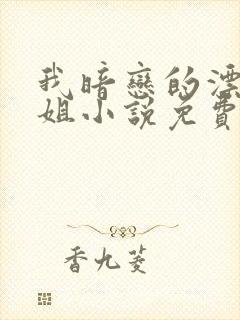 我暗戀的漂
姐小說免費
香九菱